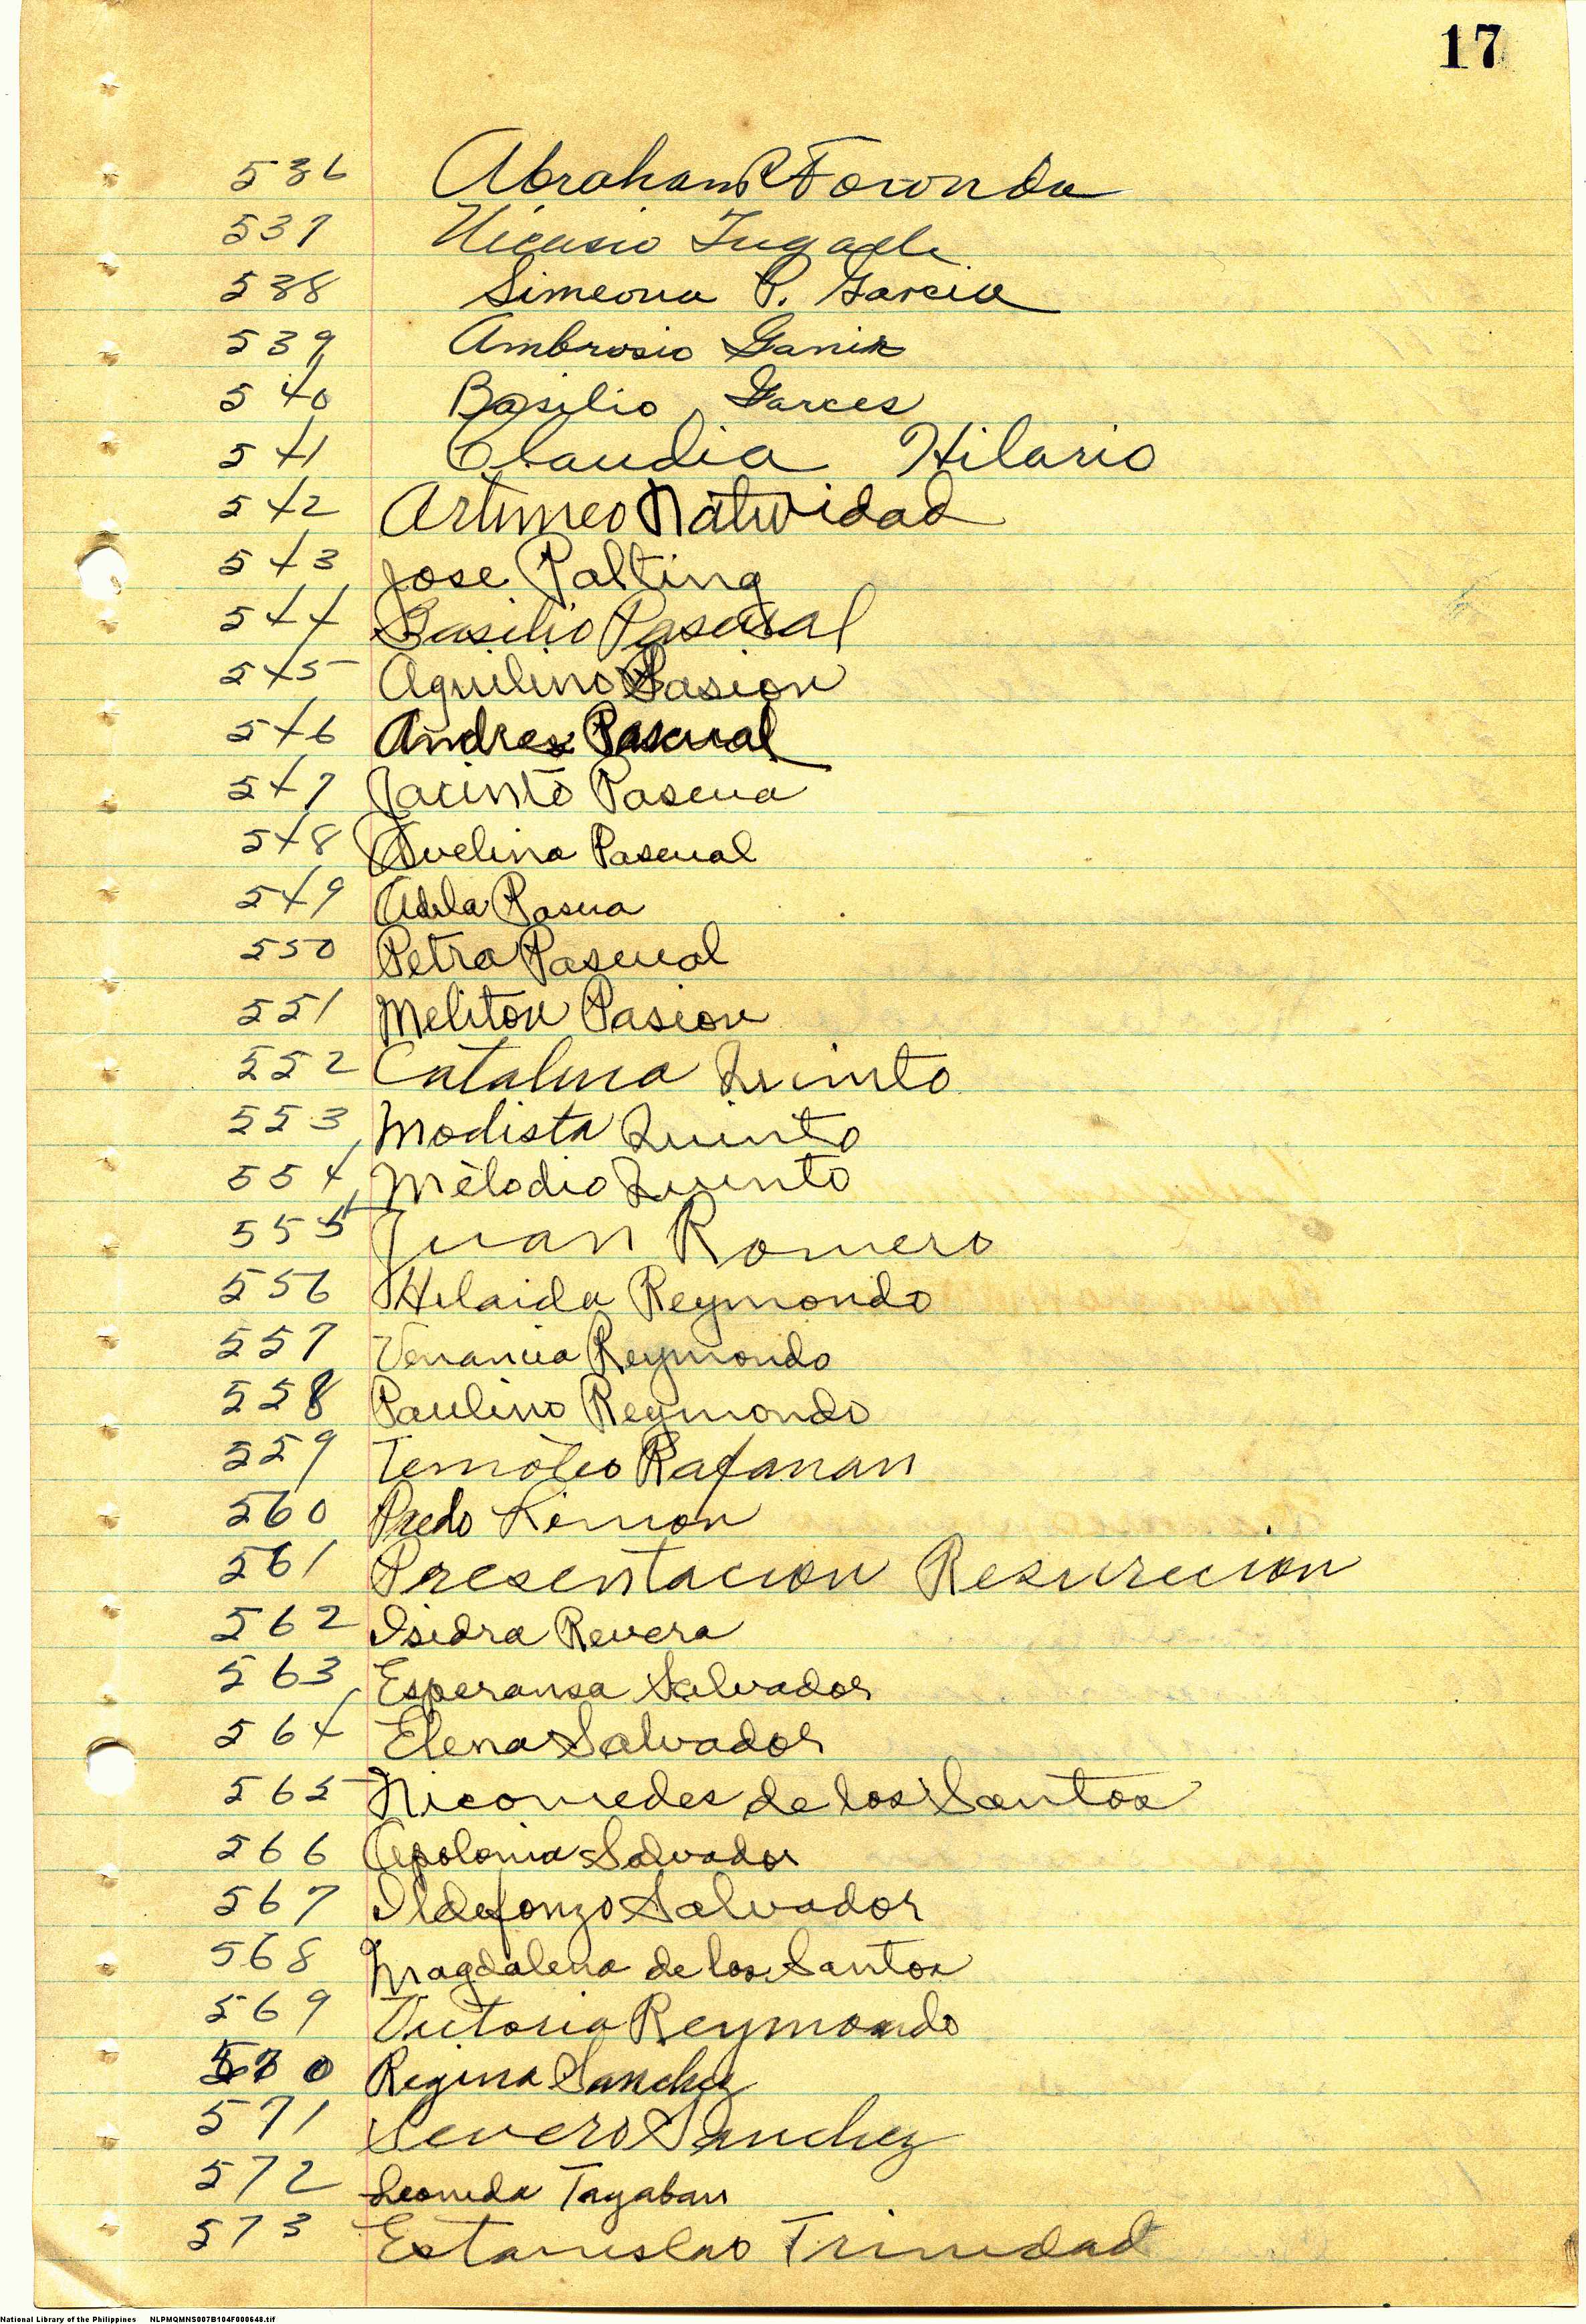 17
536 Abraham R Foronda
537 Nicasio Fugade
538 Simeona P. Garcia
539 Ambrosio Ganir
540 Basilio Garces
541 Claudia Hilario
542 Artimeo Natividad
543 Jose Palting
544 Basilio Pascual
545 Aquilino Pasion
546 Andres Pascual
547 Jacinto Pascua
548 Avelina Pascual
549 Adela Pascua
550 Petra Pascual
551 Meliton Pasion
552 Catalina Quinto
553 Modista Quinto
554 Melodio Quinto
555 Juan Romero
556 Helaida Reymondo
557 Venancia Reymondo
558 Paulino Reymondo
559 Temoteo Rafanan
560 Predo Rimon
561 Presentacion Resureccion
562 Isidra Revera
563 Esperansa Salvador
564 Elena Salvador
565 Nicomedes de los Santos
566 Apolonia Salvador
567 Ildefonzo Salvador
568 Magdalena de los Santos
569 Victoria Reymondo
570 Regina Sanchez
571 Severo Sanchez
572 Leonida Tayaban
573 Estanislao Trinidad
National Library of the Philippines NLPMQMNS007B104F000648.tif